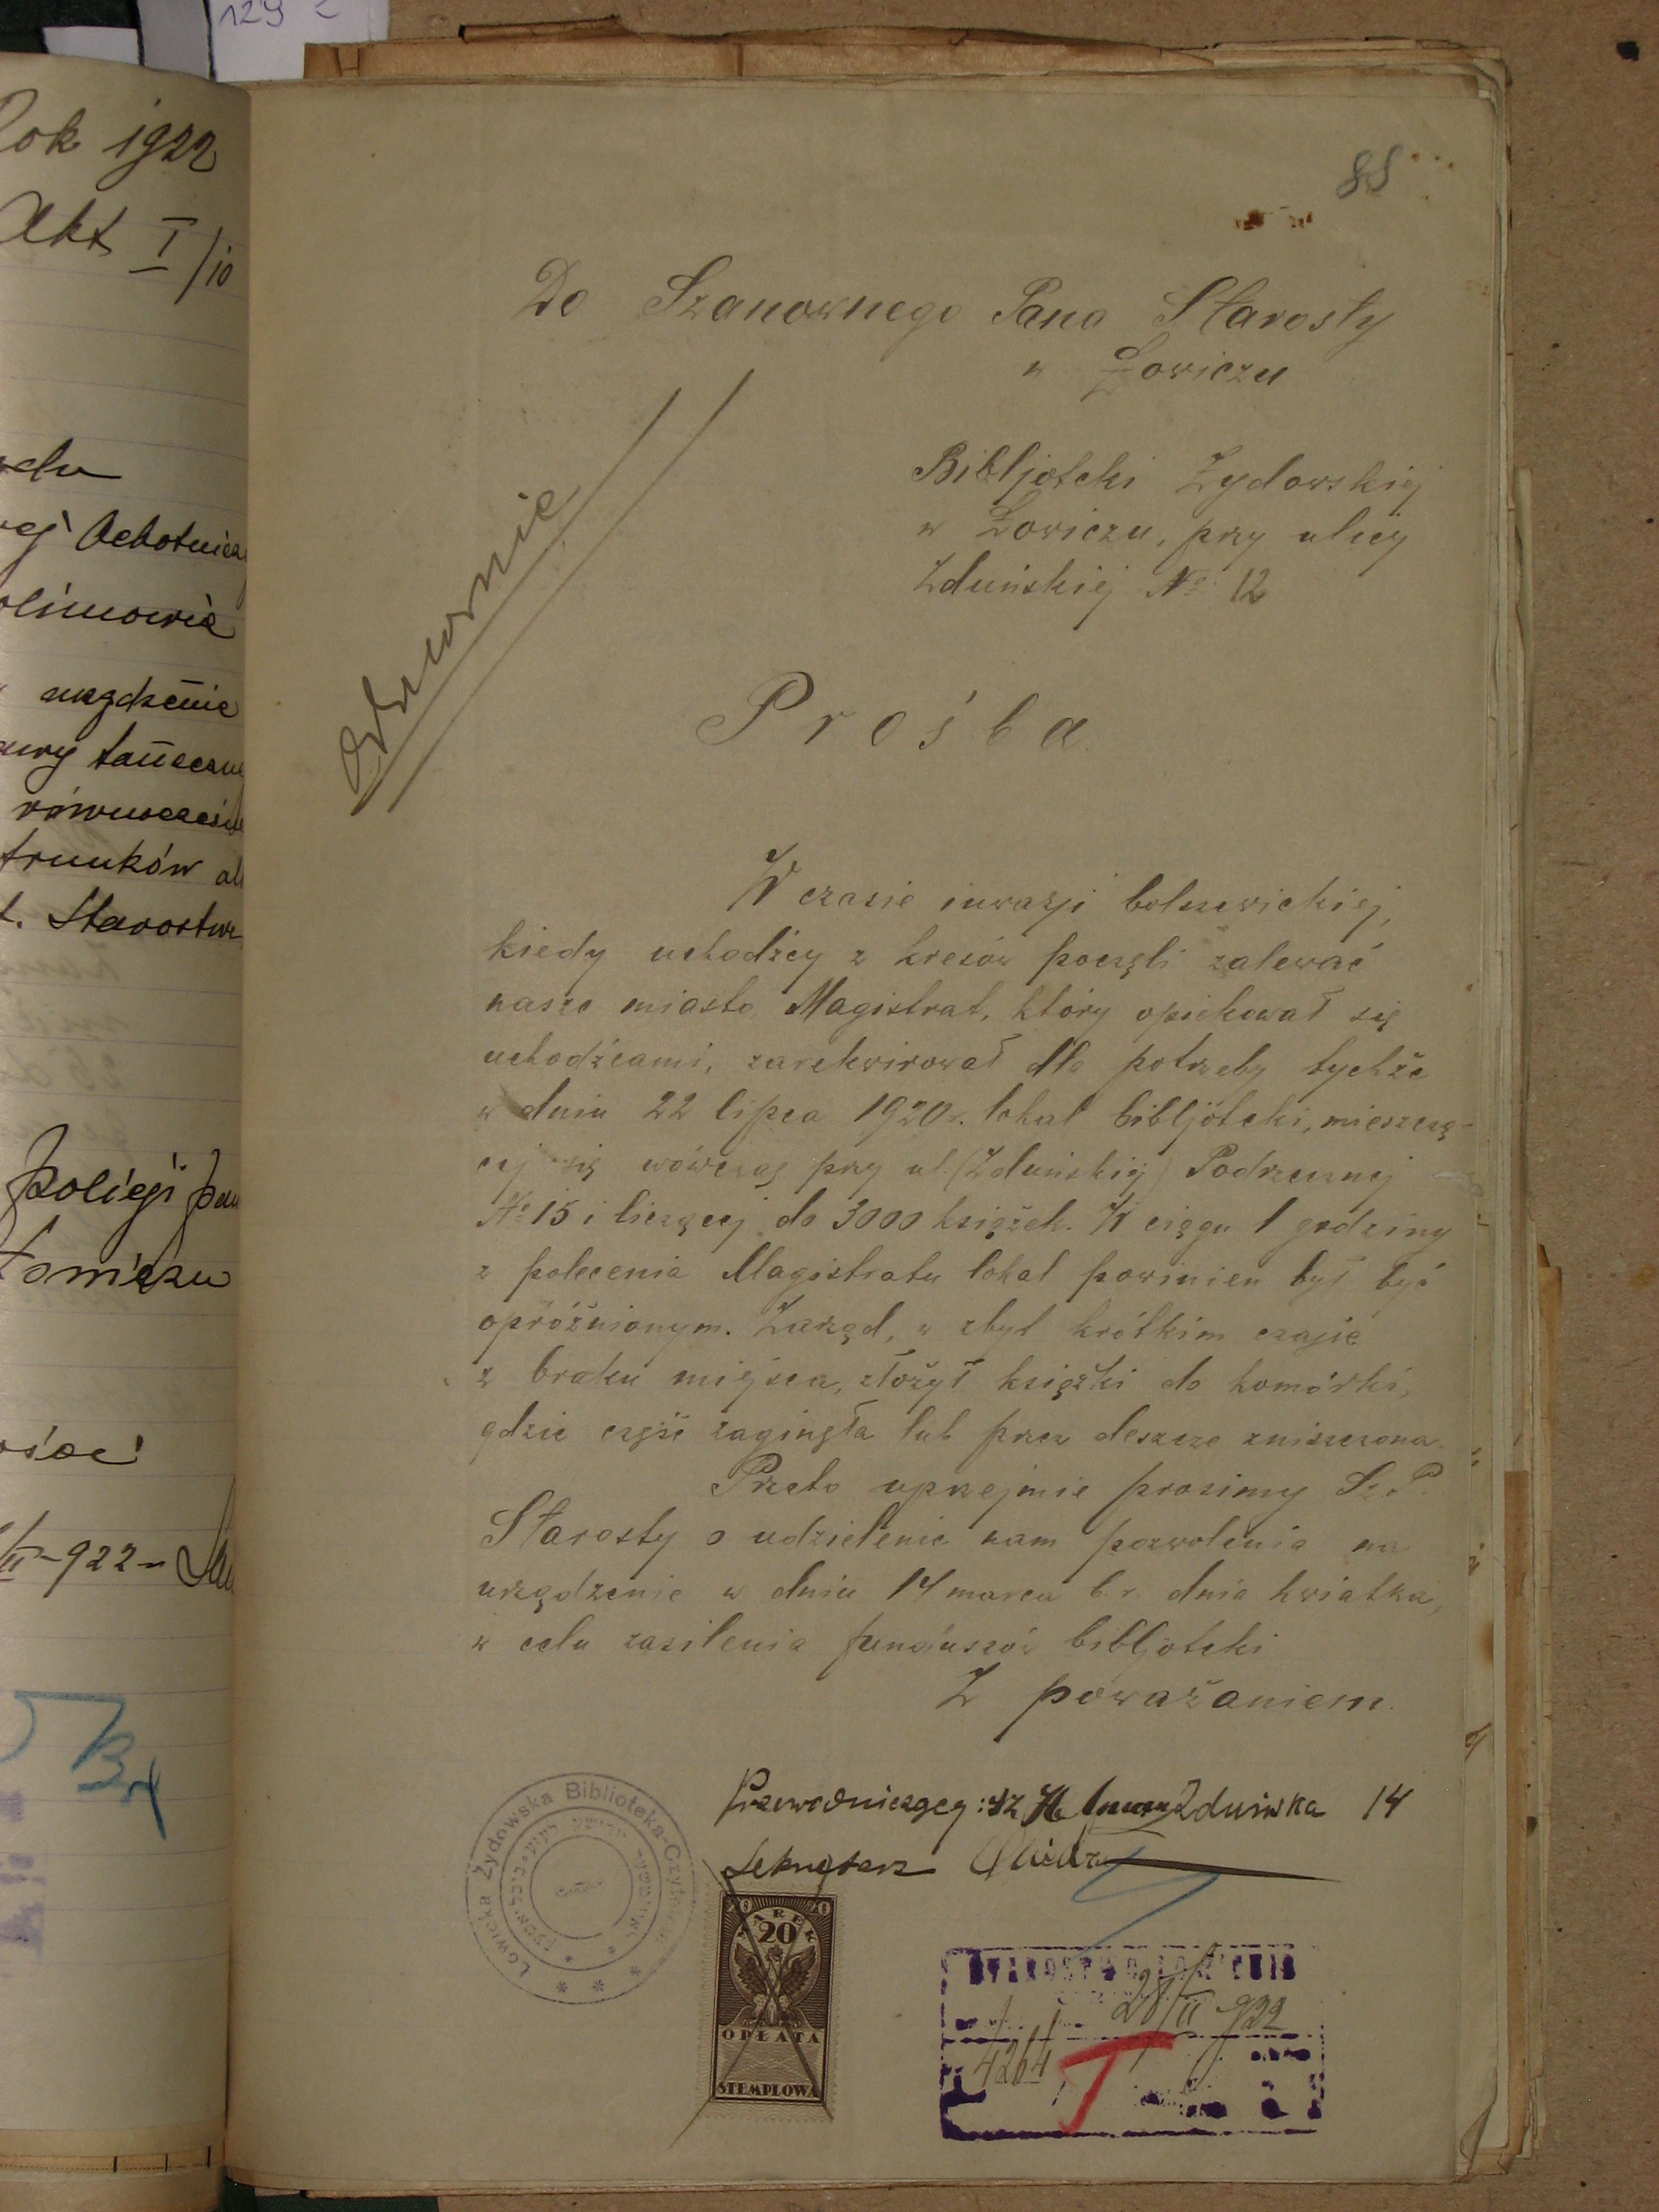 129
Rok 1922
Akt I/10
ej Ochotnicz
olimowie
urządzenie
tanecznej
równocześnie
trunków al
t. Starostw
policji pań
Łowiczu
II-922-
88
Do Szanownego Pana Starosty
w Łowiczu
Bibljoteki Żydowskiej
w Łowiczu, przy ulicy
Zduńskiej № 12
Odmownie
Prośba.
W czasie inwazji bolszewickiej,
kiedy uchodźcy z kresów poczęli zalewać
nasze miasto, Magistrat, który opiekował się
uchodźcami, zarekwirował dla potrzeby tychże
w dniu 22 lipca 1920 r. lokal bibljoteki, mieszczą-
cej się wówczas przy ul. (Zduńskiej) Podrzecznej
№ 15 i liczącej do 3000 książek. W ciągu 1 godziny
z polecenia Magistratu lokal powinien był być
opróżnionym. Zarząd, w zbyt krótkim czasie
z braku miejsca, złożył książki do komórki,
gdzie część zaginęła lub przez deszcze zniszczona.
Przeto uprzejmie prosimy Sz. P.
Starosty o udzielenie nam pozwolenia na
urządzenie w dniu 14 marca b. r. dnia kwiatka,
w celu zasilenia funduszów bibljoteki
Z poważaniem.
Przewodniczący: Zduńska 14
Sekretarz
Łowicka Żydowska Biblioteka-Czytelnia
20 MAREK 20
20
OPŁATA
STEMPLOWA
STAROSTWO ŁOWICKIE
28/II 922
4264
I